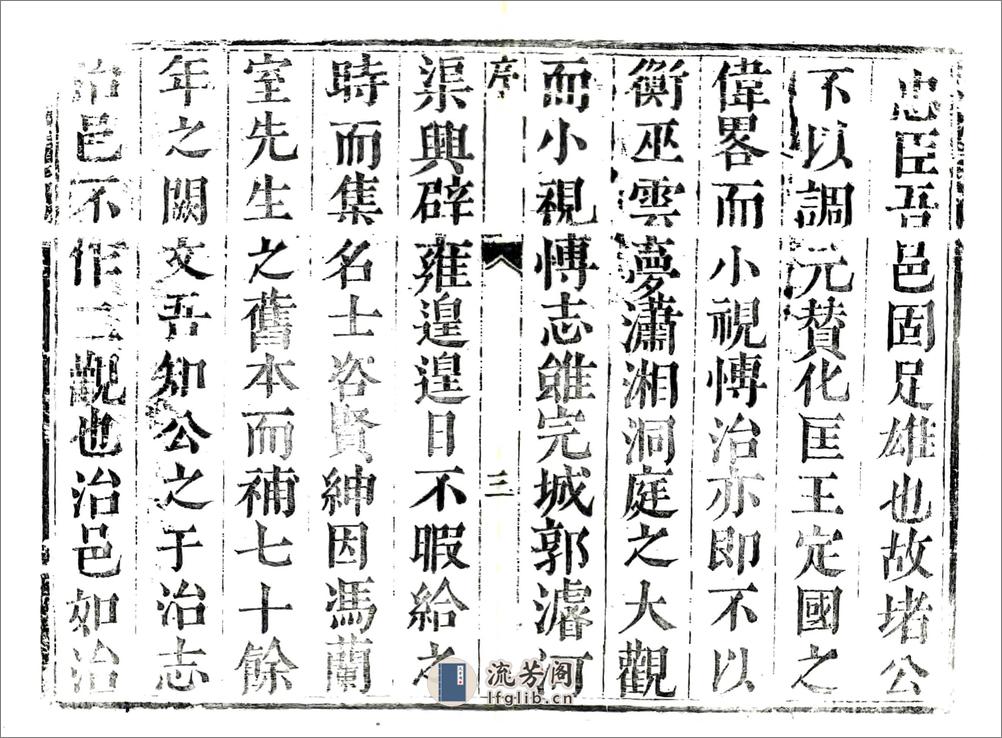 忠臣吾邑固足雄也故堵公
不以調元賛化匡王定國之
偉畧而小視慱治亦即不以
衡巫雲夢瀟湘洞庭之大觀
而小視慱志雖完城郭濬河
序
三
渠興辟雍遑遑日不暇給之
時而集名士咨賢紳因馮蘭
室先生之舊本而補七十餘
年之闕文吾知公之于治志
治邑不作二觀也治邑如治
流芳阁
lfglib.cn